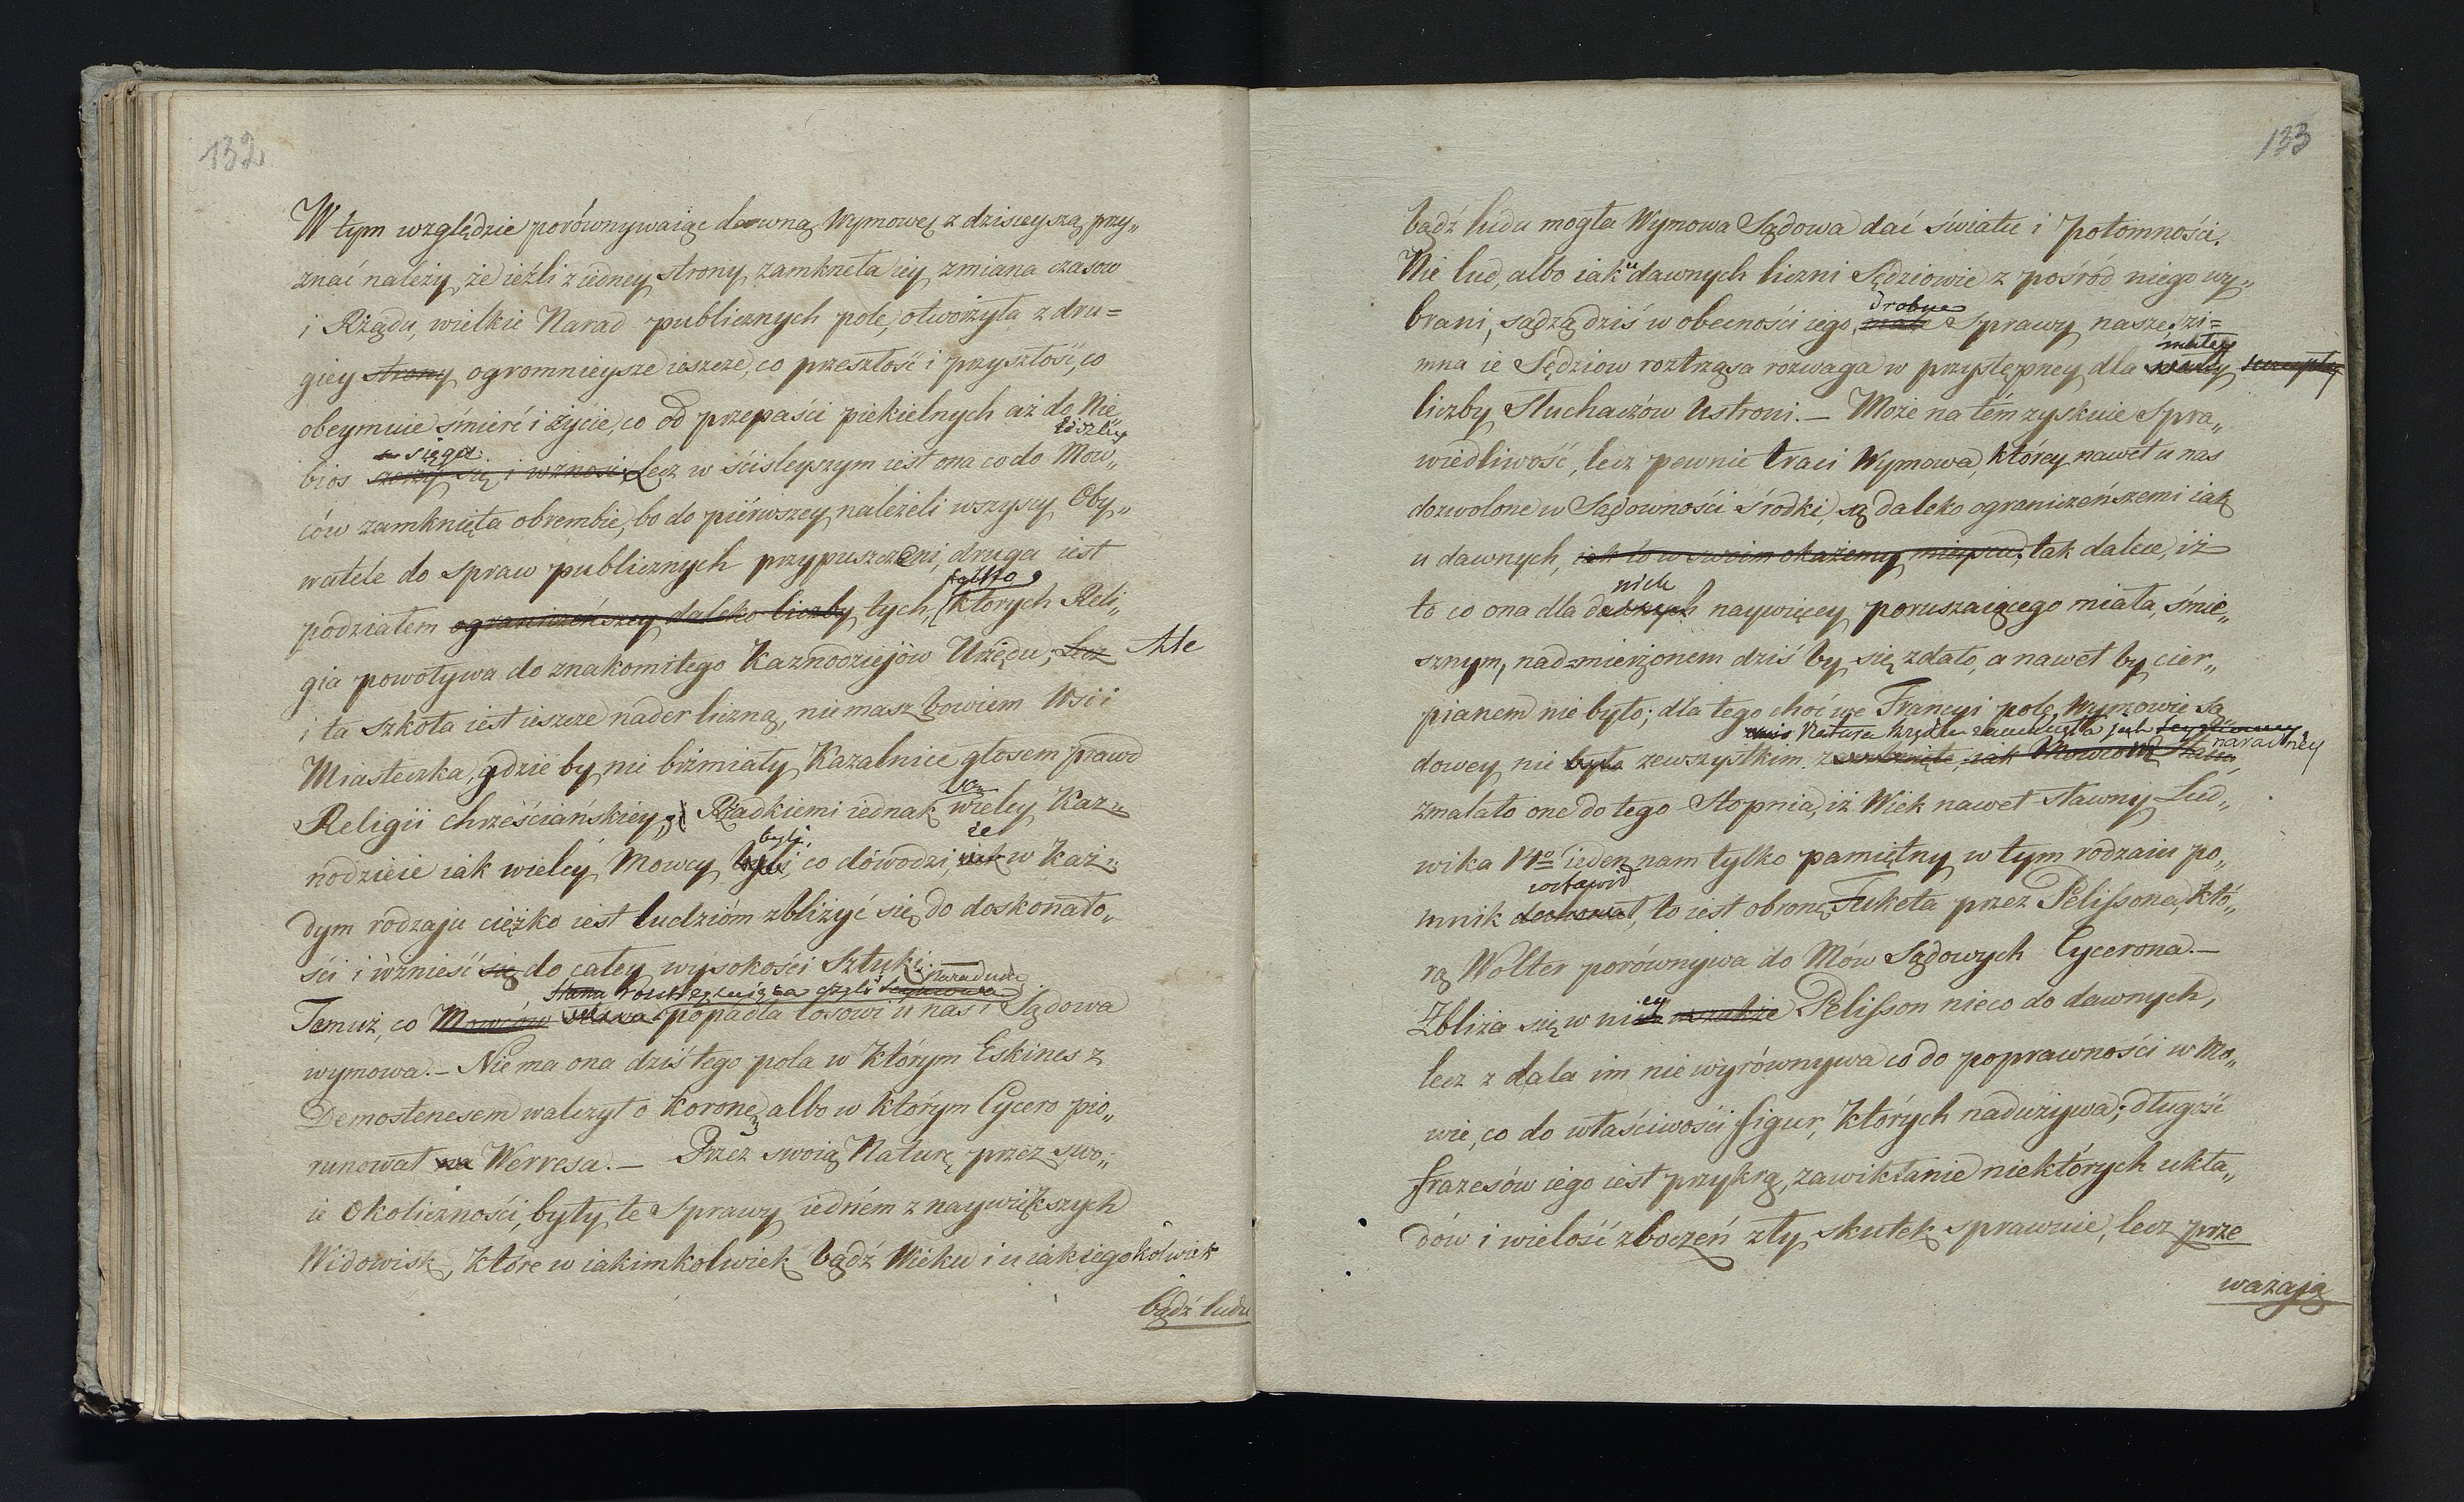 132
W tym względzie porównywaiąc dawną Wymowę z dzisieyszą przy„
znać należy, że ieźli z iedney strony zamknęła iey zmiana czasow
i Rządu, wielkie Narad publicznych pole, otworzyła z dru=
giey strony ogromnieysze ieszcze, co przeszłość i przyszłość, co
obeymuie śmierć i życie, co od przepaści piekielnych aż do Nie
sięga
bios szerzy się i wznosi; Lecz w ściśleyszym iest ona co do Mow„
ców zamknięta obrembie, bo do piérwszey należeli wszyscy Oby„
watele do spraw publicznych przypuszczeni, druga iest
tylko
podziałem ograniczeńszey daleko liczby tych, których Reli„
gia powoływa do znakomitego Kaznodziejów Urzędu; Lecz Ale
i ta szkoła iest ieszcze nader liczną, nie masz bowiem Wsi i
Miasteczka, gdzie by nie brzmiały Kazalnice głosem prawd
są
Religii chrześciańskiey, Rzadkiemi iednak wielcy Kaz„
byli, że
nodzieie iak wielcy Mowcy byli co dowodzi, iak w każ„
dym rodzaju ciężko iest ludzióm zbliżyć się do doskonało„
ści i wznieść się do całey wysokości Sztuki.
Stanu
Temuż, co Mowców popadła losowi u nas i Sądowa
wymowa. – Nie ma ona dziś tego pola w którym Eskines z
Demostenesem walczył o koronę, albo w którym Cycero pio„
runował na Werresa. – Przez swoią Naturę, przez swo„
ie Okoliczności, były te Sprawy iedném z naywiększych
Widowisk, które w iakimkolwiek bądź Wieku i u iakiegokolwiek
bądź ludu
133
bądź ludu mogła Wymowa Sądowa dać światu i Potomności.
Nie lud, albo iak u dawnych liczni Sędziowie z pośród niego wy„
drobne
brani, sądzą dziś w obecności iego, małe Sprawy nasze, zi=
małey
mna ie Sędziow roztrząsa rozwaga w przystępney dla szczupłey
liczby Słuchaczów Ustroni. – Może na tém zyskuie Spra„
wiedliwość, lecz pewnie traci Wymowa, którey nawet u nas
dozwolone w Sądowności środki, są daleko ograniczeńszemi iak
u dawnych, iak to w swoim okażemy mieyscu, tak dalece, iż
nich
to co ona dla naywięcey poruszaiącego miała, śmie„
sznym, nadmierzonem dziś by się zdało, a nawet by cier„
pianem nie było; dla tego choć we Francyi pole Wymowie Są
Natura Rządu zamknęła jak naradney
dowey nie było zewszystkim zamknięte, iak Mowcom Stanu
zmalało one do tego Stopnia, iż Wiek nawet sławny Lud„
wika 14º ieden nam tylko pamiętny w tym rodzaiu po„
zostawił
mnik dochował, to iest obronę Fuketa przez Pelissona, któ„
rą Wolter porównywa do Mów Sądowych Cycerona. –
Zbliża się w niey wszakże Pelisson nieco do dawnych,
lecz z dala im nie wyrównywa co do poprawności w Mo„
wie, co do właściwości figur, których nadużywa; długość
frazesów iego iest przykrą, zawikłanie niektórych ukła„
dów i wielość zboczeń zły skutek sprawuie, lecz prze
ważają